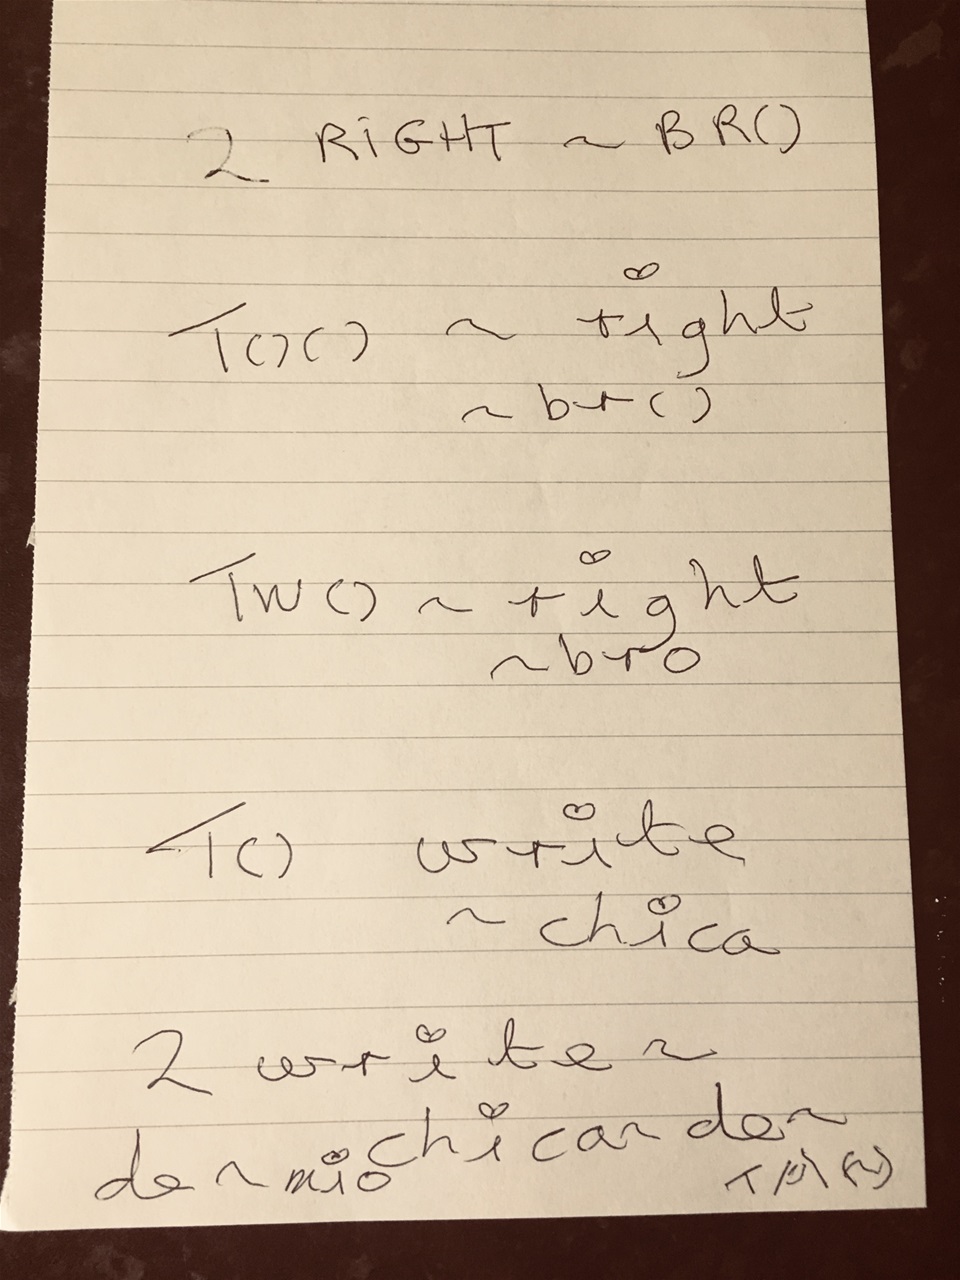 2 RiGHT ~ BR()
T()() ~ right
~ br()
TW() ~ right
~bro
T() write
~ chica
2 write ~
chica ~ de ~
de ~ mio